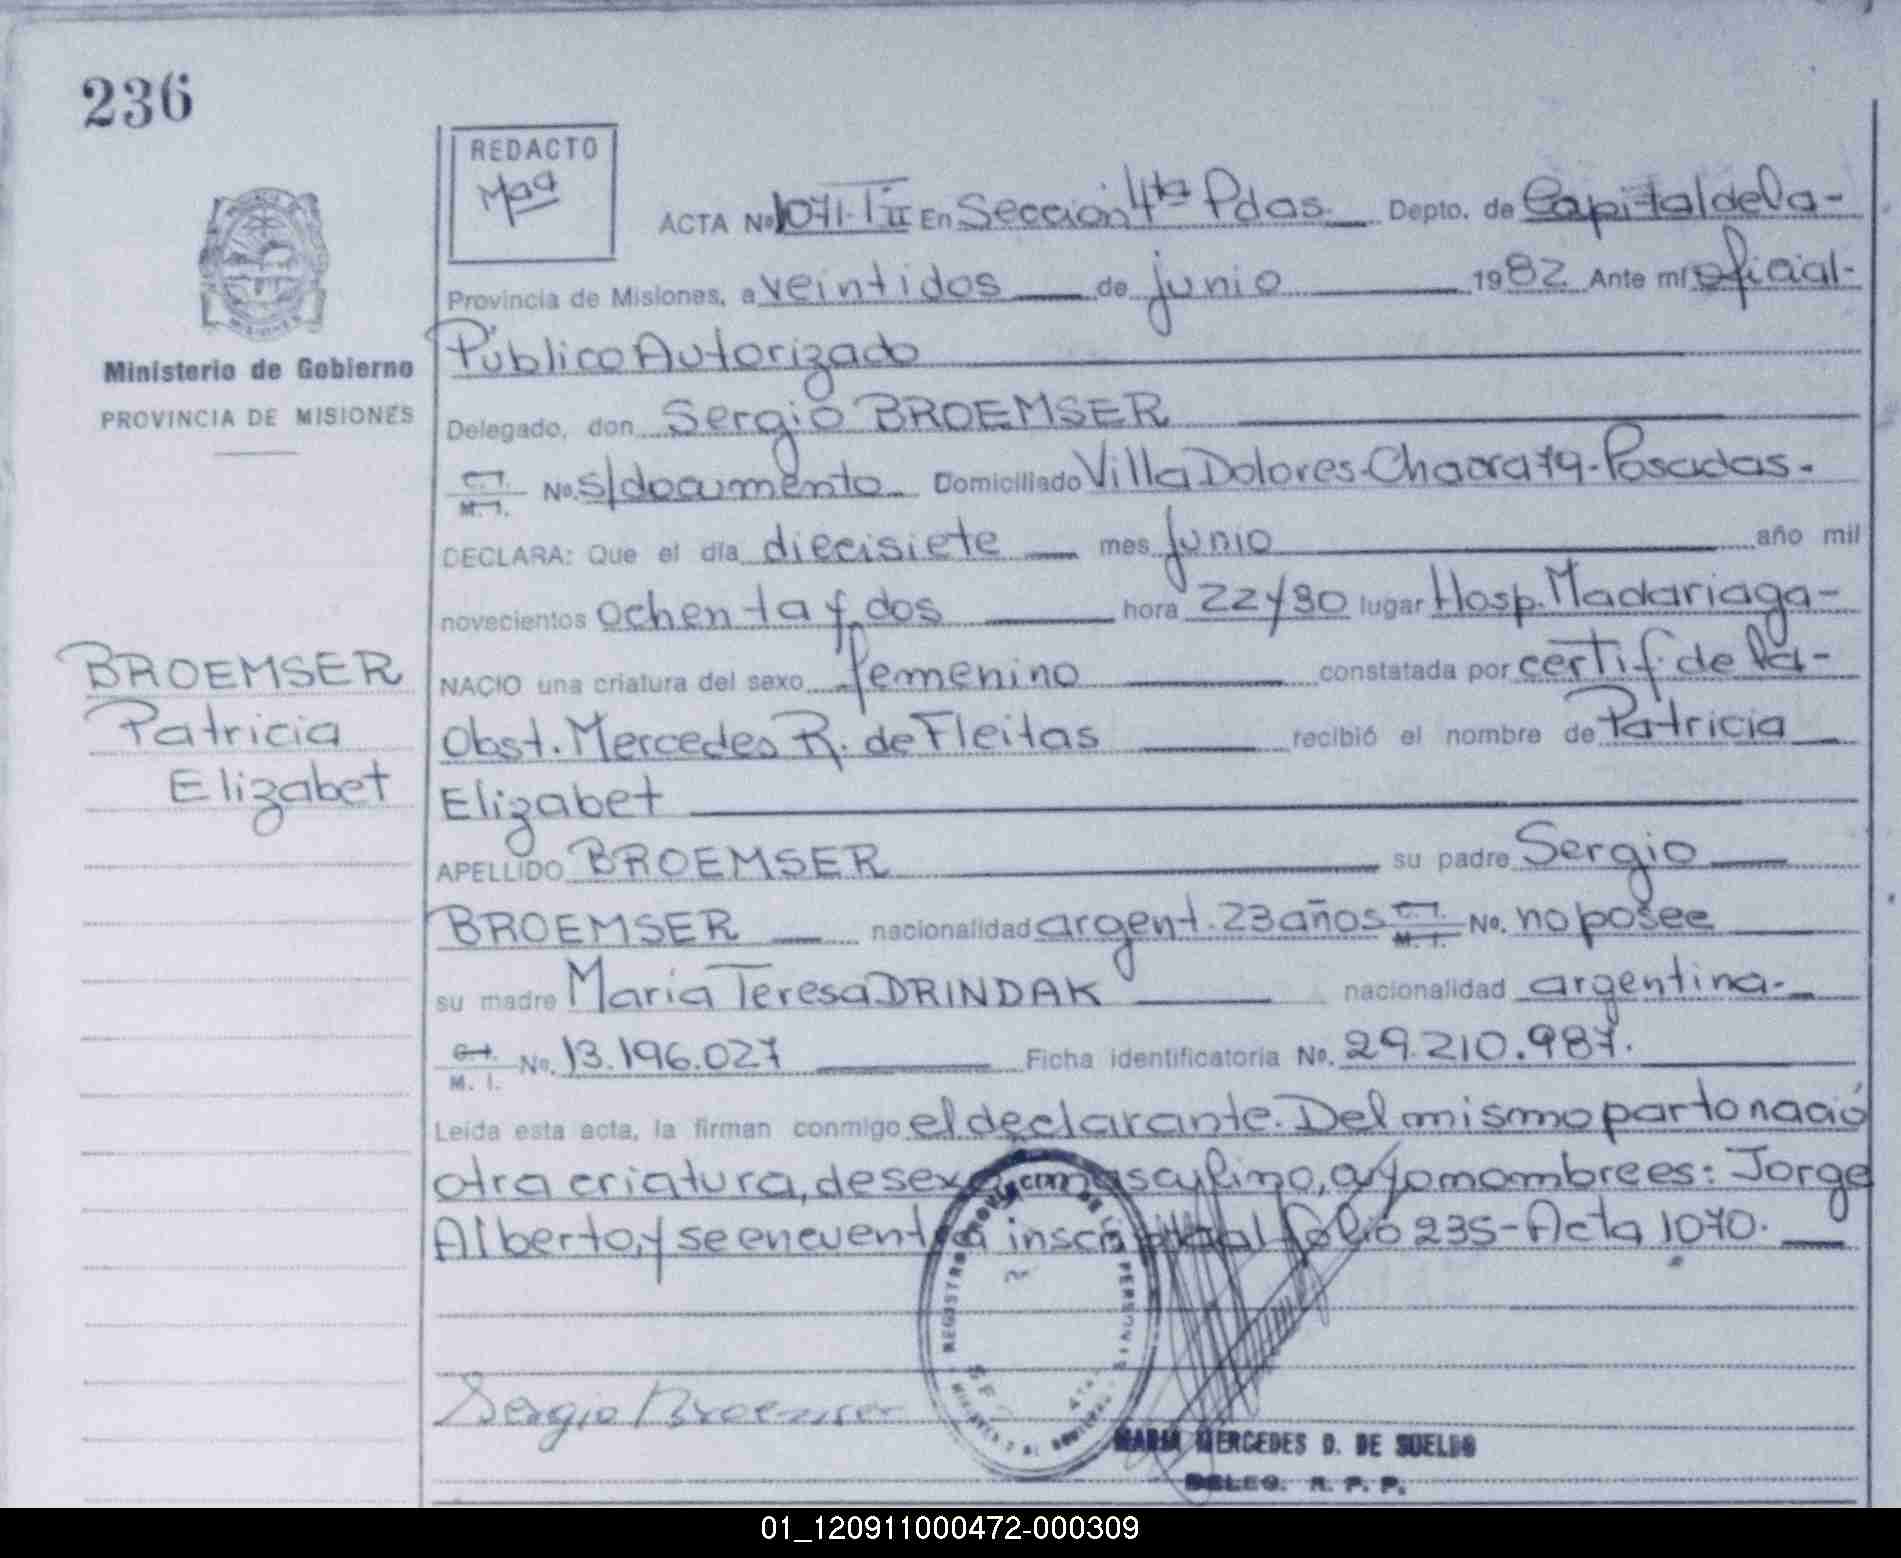 236
REDACTO
Mªª
ACTA No 1071-T II En Sección 4ta Pdas. Depto. de Capital de la-
Provincia de Misiones, a veintidos de junio 1982 Ante mí oficial-
Público Autorizado
Delegado, don Sergio BROEMSER
C.I. M.I. No. s/documento Domiciliado Villa Dolores-Chacra 79-Posadas.
DECLARA: Que el día diecisiete mes junio año mil
novecientos ochenta y dos hora 22 y 30 lugar Hosp. Madariaga-
NACIO una criatura del sexo femenino constatada por certif. de la-
Obst. Mercedes R. de Fleitas recibió el nombre de Patricia
Elizabet
APELLIDO BROEMSER su padre Sergio
BROEMSER nacionalidad argent. 23 años C.I. M.I. No. no posee
su madre María Teresa DRINDAK nacionalidad argentina.-
C.I. M.I. No. 13.196.027 Ficha identificatoria No. 29.210.987.
Leída esta acta, la firman conmigo el declarante. Del mismo parto nació
otra criatura, de sexo masculino, cuyo nombre es: Jorge
Alberto, y se encuentra inscripta al folio 235-Acta 1070.
Sergio Broemser
MARIA MERCEDES D. DE SUELDO
DELEG. R. P. P.
Ministerio de Gobierno
PROVINCIA DE MISIONES
BROEMSER
Patricia
Elizabet
01_120911000472-000309